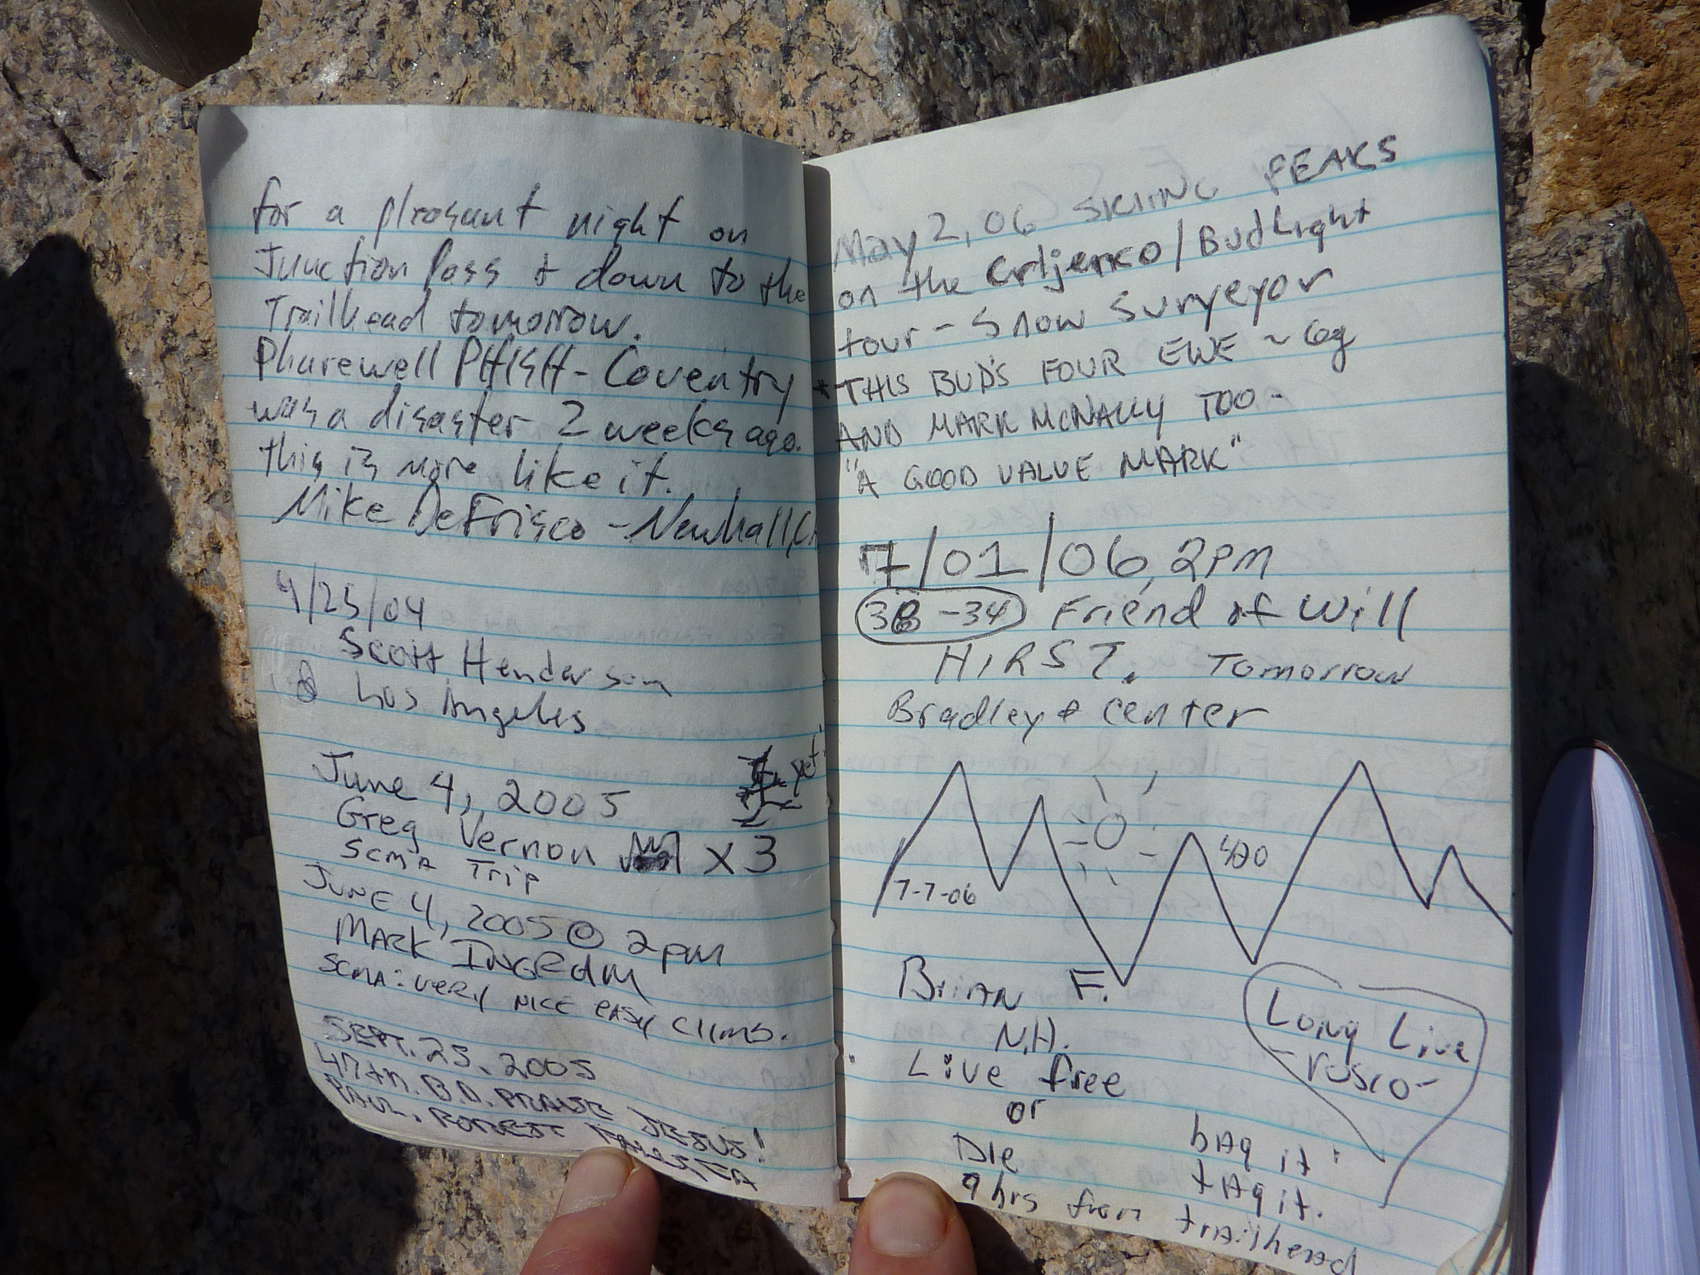 for a pleasant night on
Junction Pass + down to the
Trailhead tomorrow.
Pharewell PHISH - Coventry
was a disaster 2 weeks ago.
this is more like it.
Mike DeFrisco - Newhall, CA
4/25/04
Scott Henderson
Los Angeles
yet!
June 4, 2005
Greg Vernon x3
SCMA Trip
JUNE 4, 2005 @ 2pm
MARK INGRAM
SCMA: VERY NICE EASY CLIMB.
SEPT. 25, 2005
B.D. PRAISE JESUS!
PAUL
May 2, 06 SKIING PEAKS
on the /BudLight
tour - Snow Surveyor
THIS BUD'S FOUR EWE ~
AND MARK MCNALLY TOO -
"A GOOD VALUE MARK"
7/01/06, 2pm
-34 Friend of Will
HIRST. Tomorrow
Bradley + Center
420
7-7-06
BriAN F.
N.H.
Live free
or
Die
Long Live
-rosco-
bAg it
tAg it.
9 hrs from trailhead